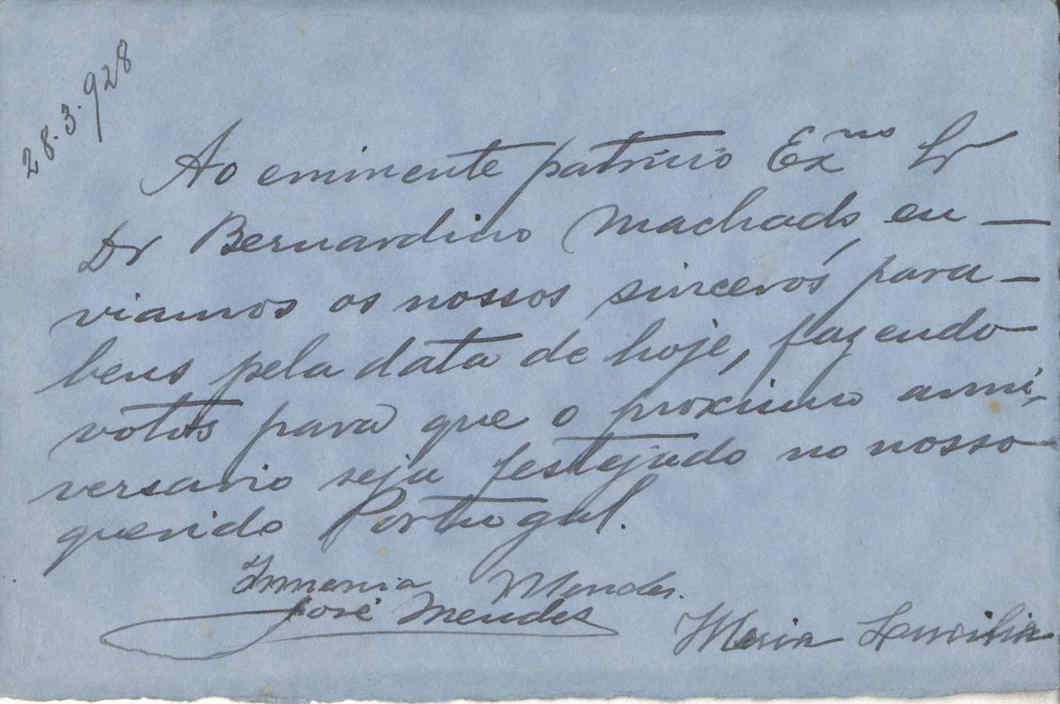 28.3.928
Ao eminente patricio Exmo Sr
Dr Bernardino Machado en-
viamos os nossos sinceros para-
bens pela data de hoje, fazendo
votos para que o proximo anni-
versario seja festejado no nosso
querido Portugal.
Mendes.
José Mendes
Maria